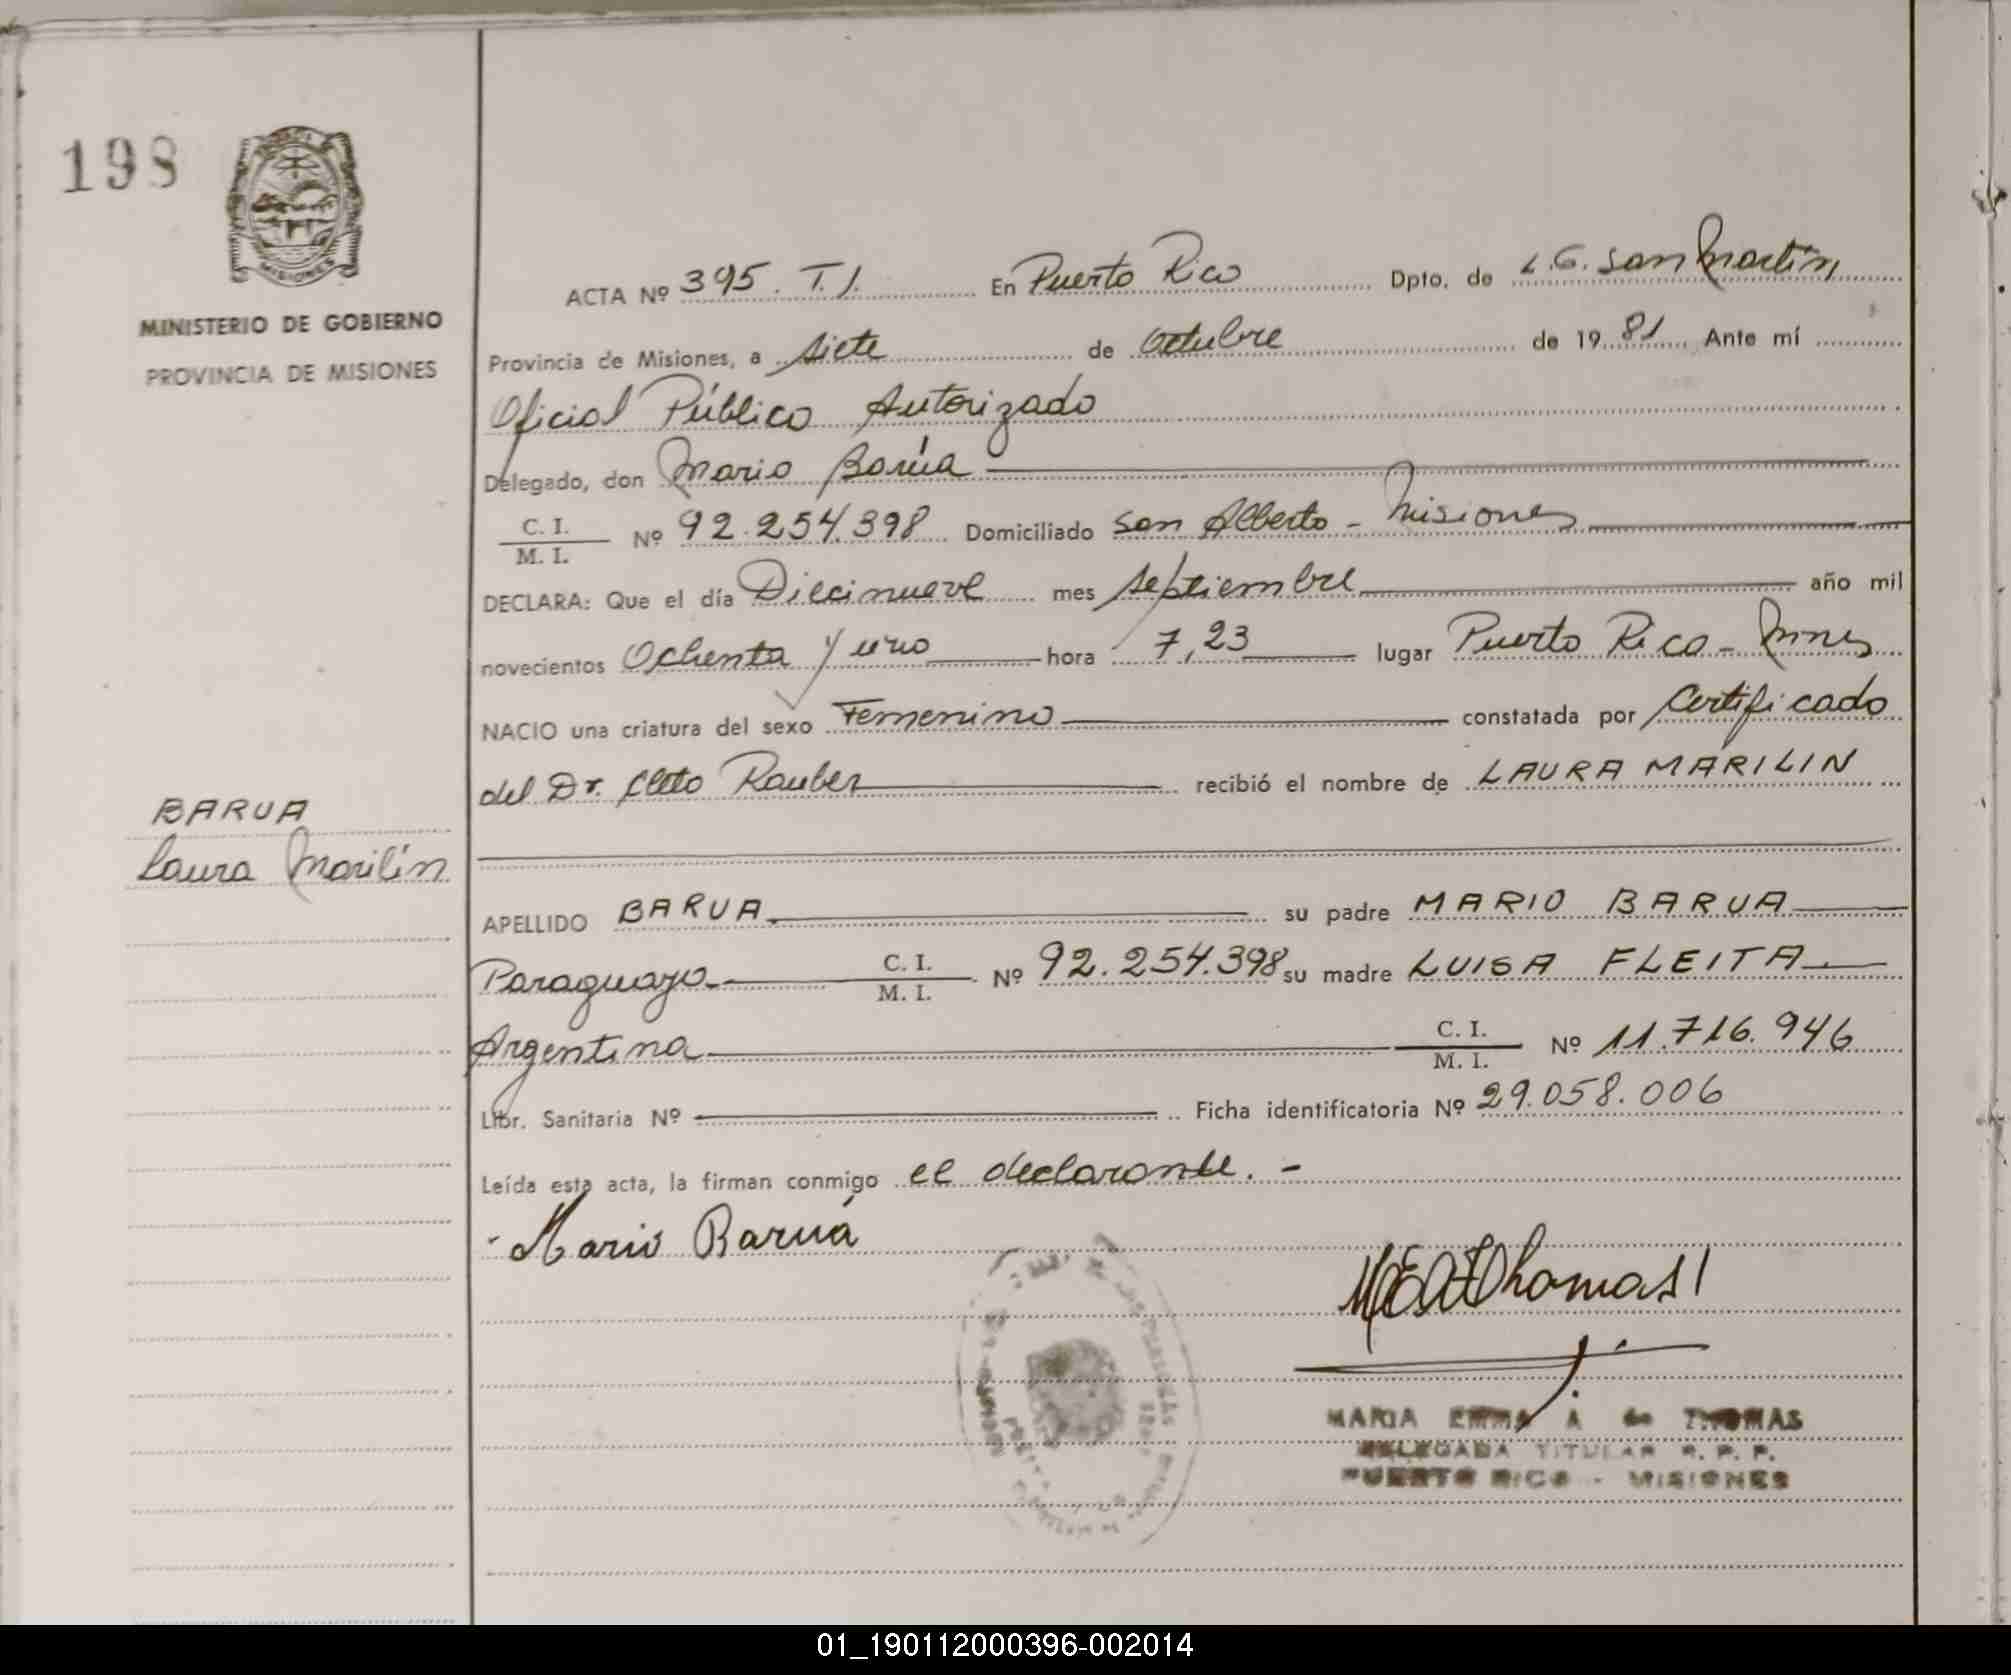 198
MISIONES
MINISTERIO DE GOBIERNO
PROVINCIA DE MISIONES
BARUA
Laura Marilín
ACTA Nº 395. T.I. En Puerto Rico Dpto. de L.G. San Martín
Provincia de Misiones, a siete de Octubre de 1981 Ante mí
Oficial Público Autorizado
Delegado, don Mario Barúa
C. I.
M. I. Nº 92.254.398 Domiciliado San Alberto - Misiones
DECLARA: Que el día Diecinueve mes septiembre año mil
novecientos Ochenta y uno hora 7,23 lugar Puerto Rico - Mnes
NACIO una criatura del sexo Femenino constatada por Certificado
del Dr. Cleto Rauber recibió el nombre de LAURA MARILIN
APELLIDO BARUA su padre MARIO BARUA
Paraguayo C. I.
M. I. Nº 92.254.398 su madre LUISA FLEITA
Argentina C. I.
M. I. Nº 11.716.946
Libr. Sanitaria Nº Ficha identificatoria Nº 29.058.006
Leída esta acta, la firman conmigo el declarante. -
Mario Baruá
Thomas
MARIA EMMA A de THOMAS
DELEGADA TITULAR R. P. P.
PUERTO RICO - MISIONES
01_190112000396-002014